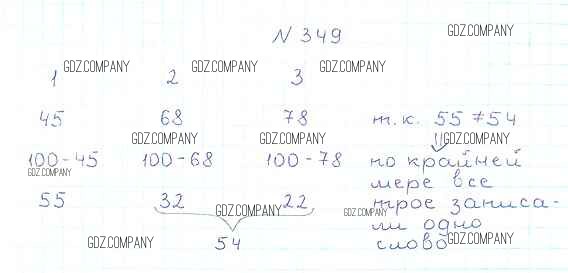 N 349
GDZ.COMPANY
1 GDZ.COMPANY 2 GDZ.COMPANY 3 GDZ.COMPANY
45 68 78 т.к. 55 ≠ 54
GDZ.COMPANY GDZ.COMPANY ⇓ GDZ.COMPANY
100-45 100-68 100-78 по крайней
GDZ.COMPANY
мере все
55 32 22 трое записа-
GDZ.COMPANY GDZ.COMPANY
ли одно
GDZ.COMPANY 54 слово GDZ.COMPANY